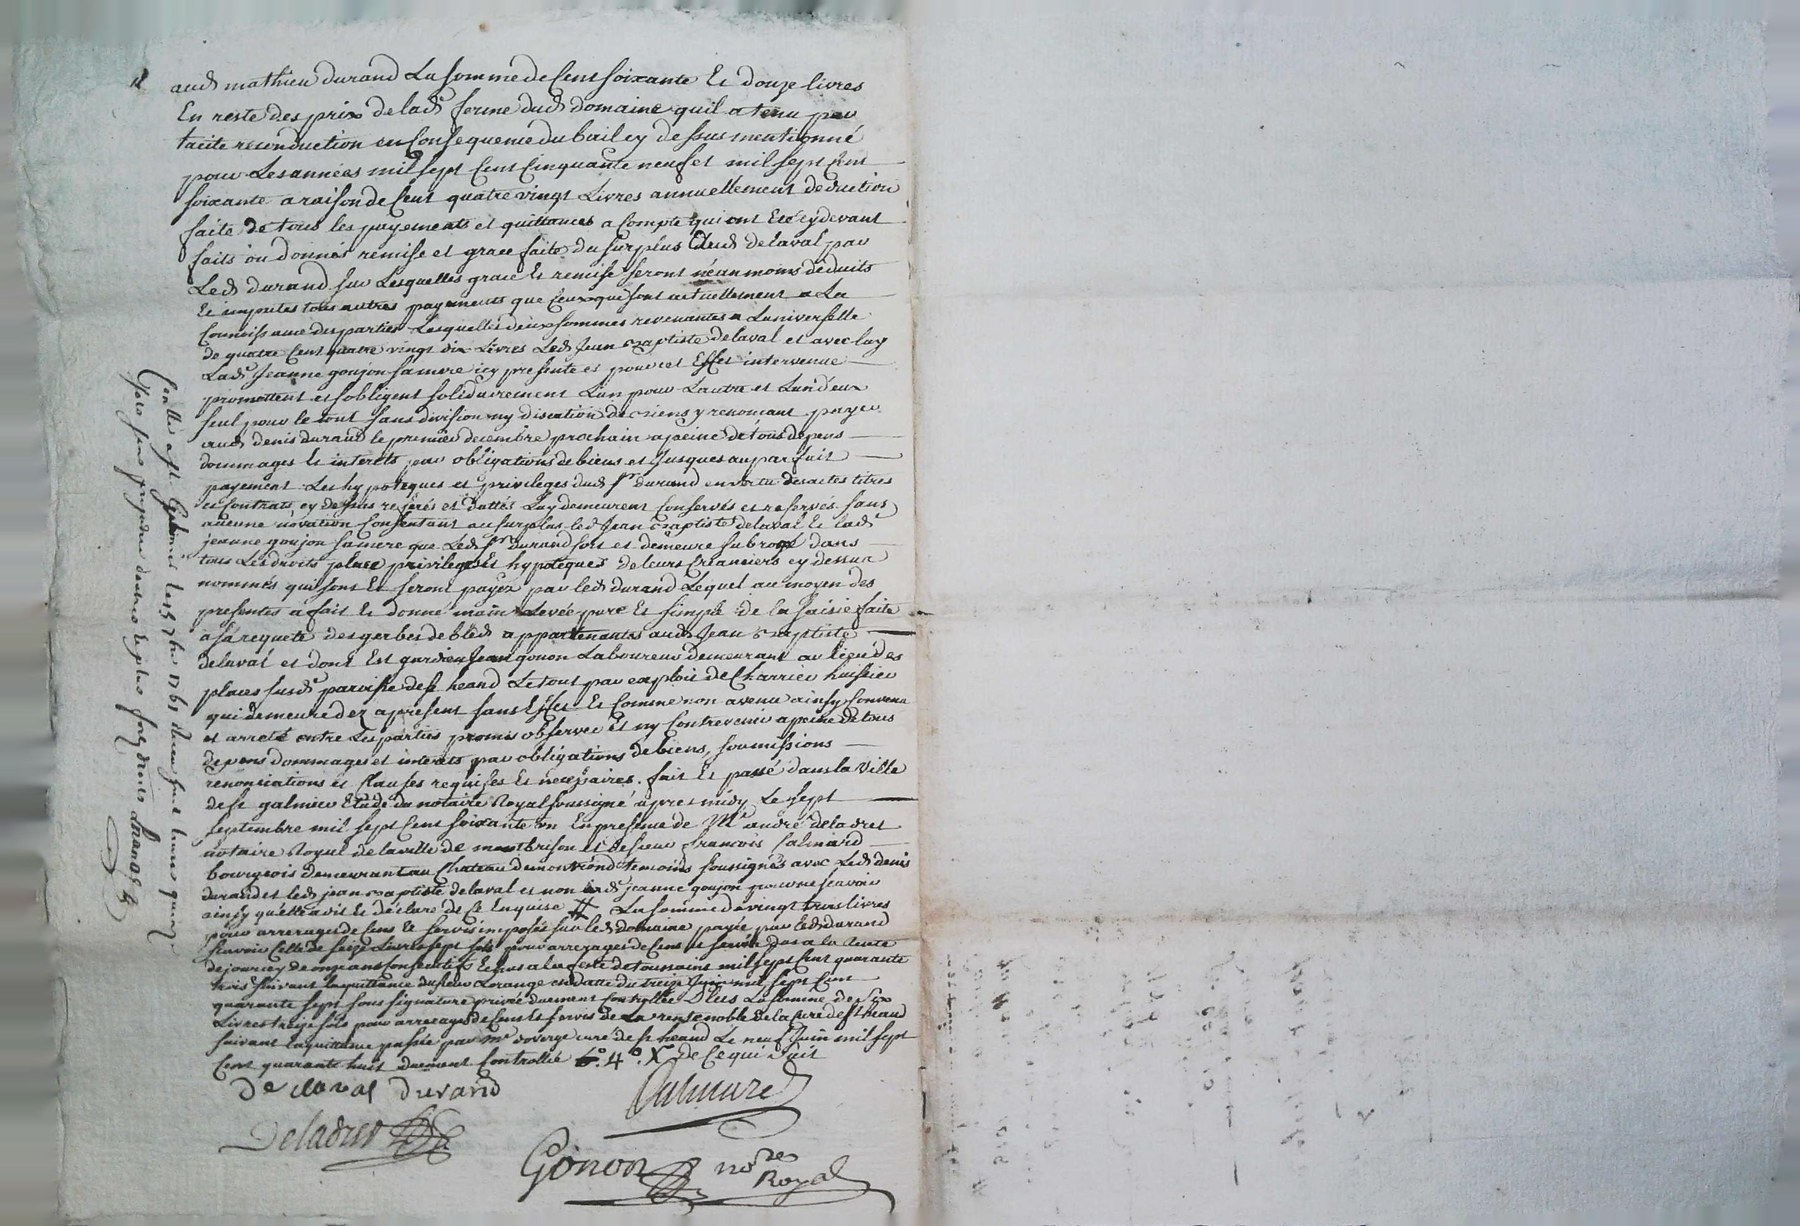 aud mathieu durand La somme de Cent soixante Et douze livres
En reste des prix de lad.e ferme dud domaine quil a tenu par
tacite reconduction en Consequence du bail cy dessus mentionné
pour Les années mil sept Cent Cinquante neuf et mil sept Cent
soixante a raison de Cent quatre vingt Livres annuellement deduction
faite de tous les payements et quittances a Compte qui ont Eté cy devant
faits ou donnés remise et grace faite du surplus aud delaval par
Led durand sur Lesquelles grace Et remise seront néanmoins déduits
Et imputés tous autres payements que Ceux qui sont actuellement a La
Connoissance des parties Lesquelles deux sommes revenantes a Luniverselle
de quatre Cent quatre vingt dix Livres Led Jean Baptiste delaval et avec luy
Lad.e Jeanne goujon sa mere icy presente et pour cet Effet intervenue
promettent et sobligent solidairement Lun pour Lautre et Lun deux
seul pour le tout sans division ny discution de biens y renoncant payer
aud denis durand le premier decembre prochain a peine de tous depens
dommages Et interets par obligations de biens et Jusques au parfait
payement Les hypoteques et privileges dud s.r durand en vertu des actes titres
et Contrats cy dessus referés et dattés Luy demeurent Conservés et reservés sans
aucune novation Consentant au surplus led Jean Baptiste delaval Et lad.e
jeanne goujon sa mere que Led s.r durand soit et demeure subrogé dans
tous Les droits place privileges Et hypoteques de leurs Créanciers cy dessus
nommés qui sont Et seront payés par led durand Lequel au moyen des
presentes a fait Et donné main Levée pure Et simple de la saisie faite
a sa requete des gerbes de bled appartenantes aud Jean Baptiste
delaval et dont Est gardien Jean gonon Laboureur demeurant au lieu des
places susd.e paroisse de s.t heand Le tout par exploit de Charrier huissier
qui demeure dez a present sans Effet Et Comme non avenu ainsy Convenu
et arreté entre Les parties promis observer Et ny Contrevenir a peine de tous
depens dommages et interets par obligations de biens, soumissions
renonciations et Clauses requises Et necessaires. fait Et passé dans la Ville
de s.t galmier Etude du notaire Royal soussigné apres midy Le sept
septembre mil sept Cent soixante un En presence de M.e andré deladret
notaire Royal de la ville de montbrison et de sieur francois
bourgeois demeurant au Chateau de montrond temoins soussignés avec Led denis
durand et led jean Baptiste delaval et non lad.e jeanne goujon pour ne scavoir
ainsy quelle a dit Et déclaré de Ce Enquise # La somme de vingt trois livres
pour arrerages de Cens Et servis imposés sur led domaine payée par led durand
scavoir Celle de seize Livres sept sols pour arrerages de Cens et servis dus a la rente
de jourcey de onze ans Consecutifs Echus a la feste de toussaint mil sept Cent quarante
trois suivant la quittance du sieur Lorange en datte du treize Juin mil sept Cent
quarante sept sous signature privée duement Controllée Plus La somme de six
Livres treize sols pour arrerages de Cens Et servis de La rente noble de la Cure de s.t heand
suivant la quittance passée par m.e cure de s.t heand Le neuf Juin mil sept
Cent quarante huit duement Controllée 4.o X.e de Ce qui suit
De laval durand
Deladret
Gonon no.re Royal